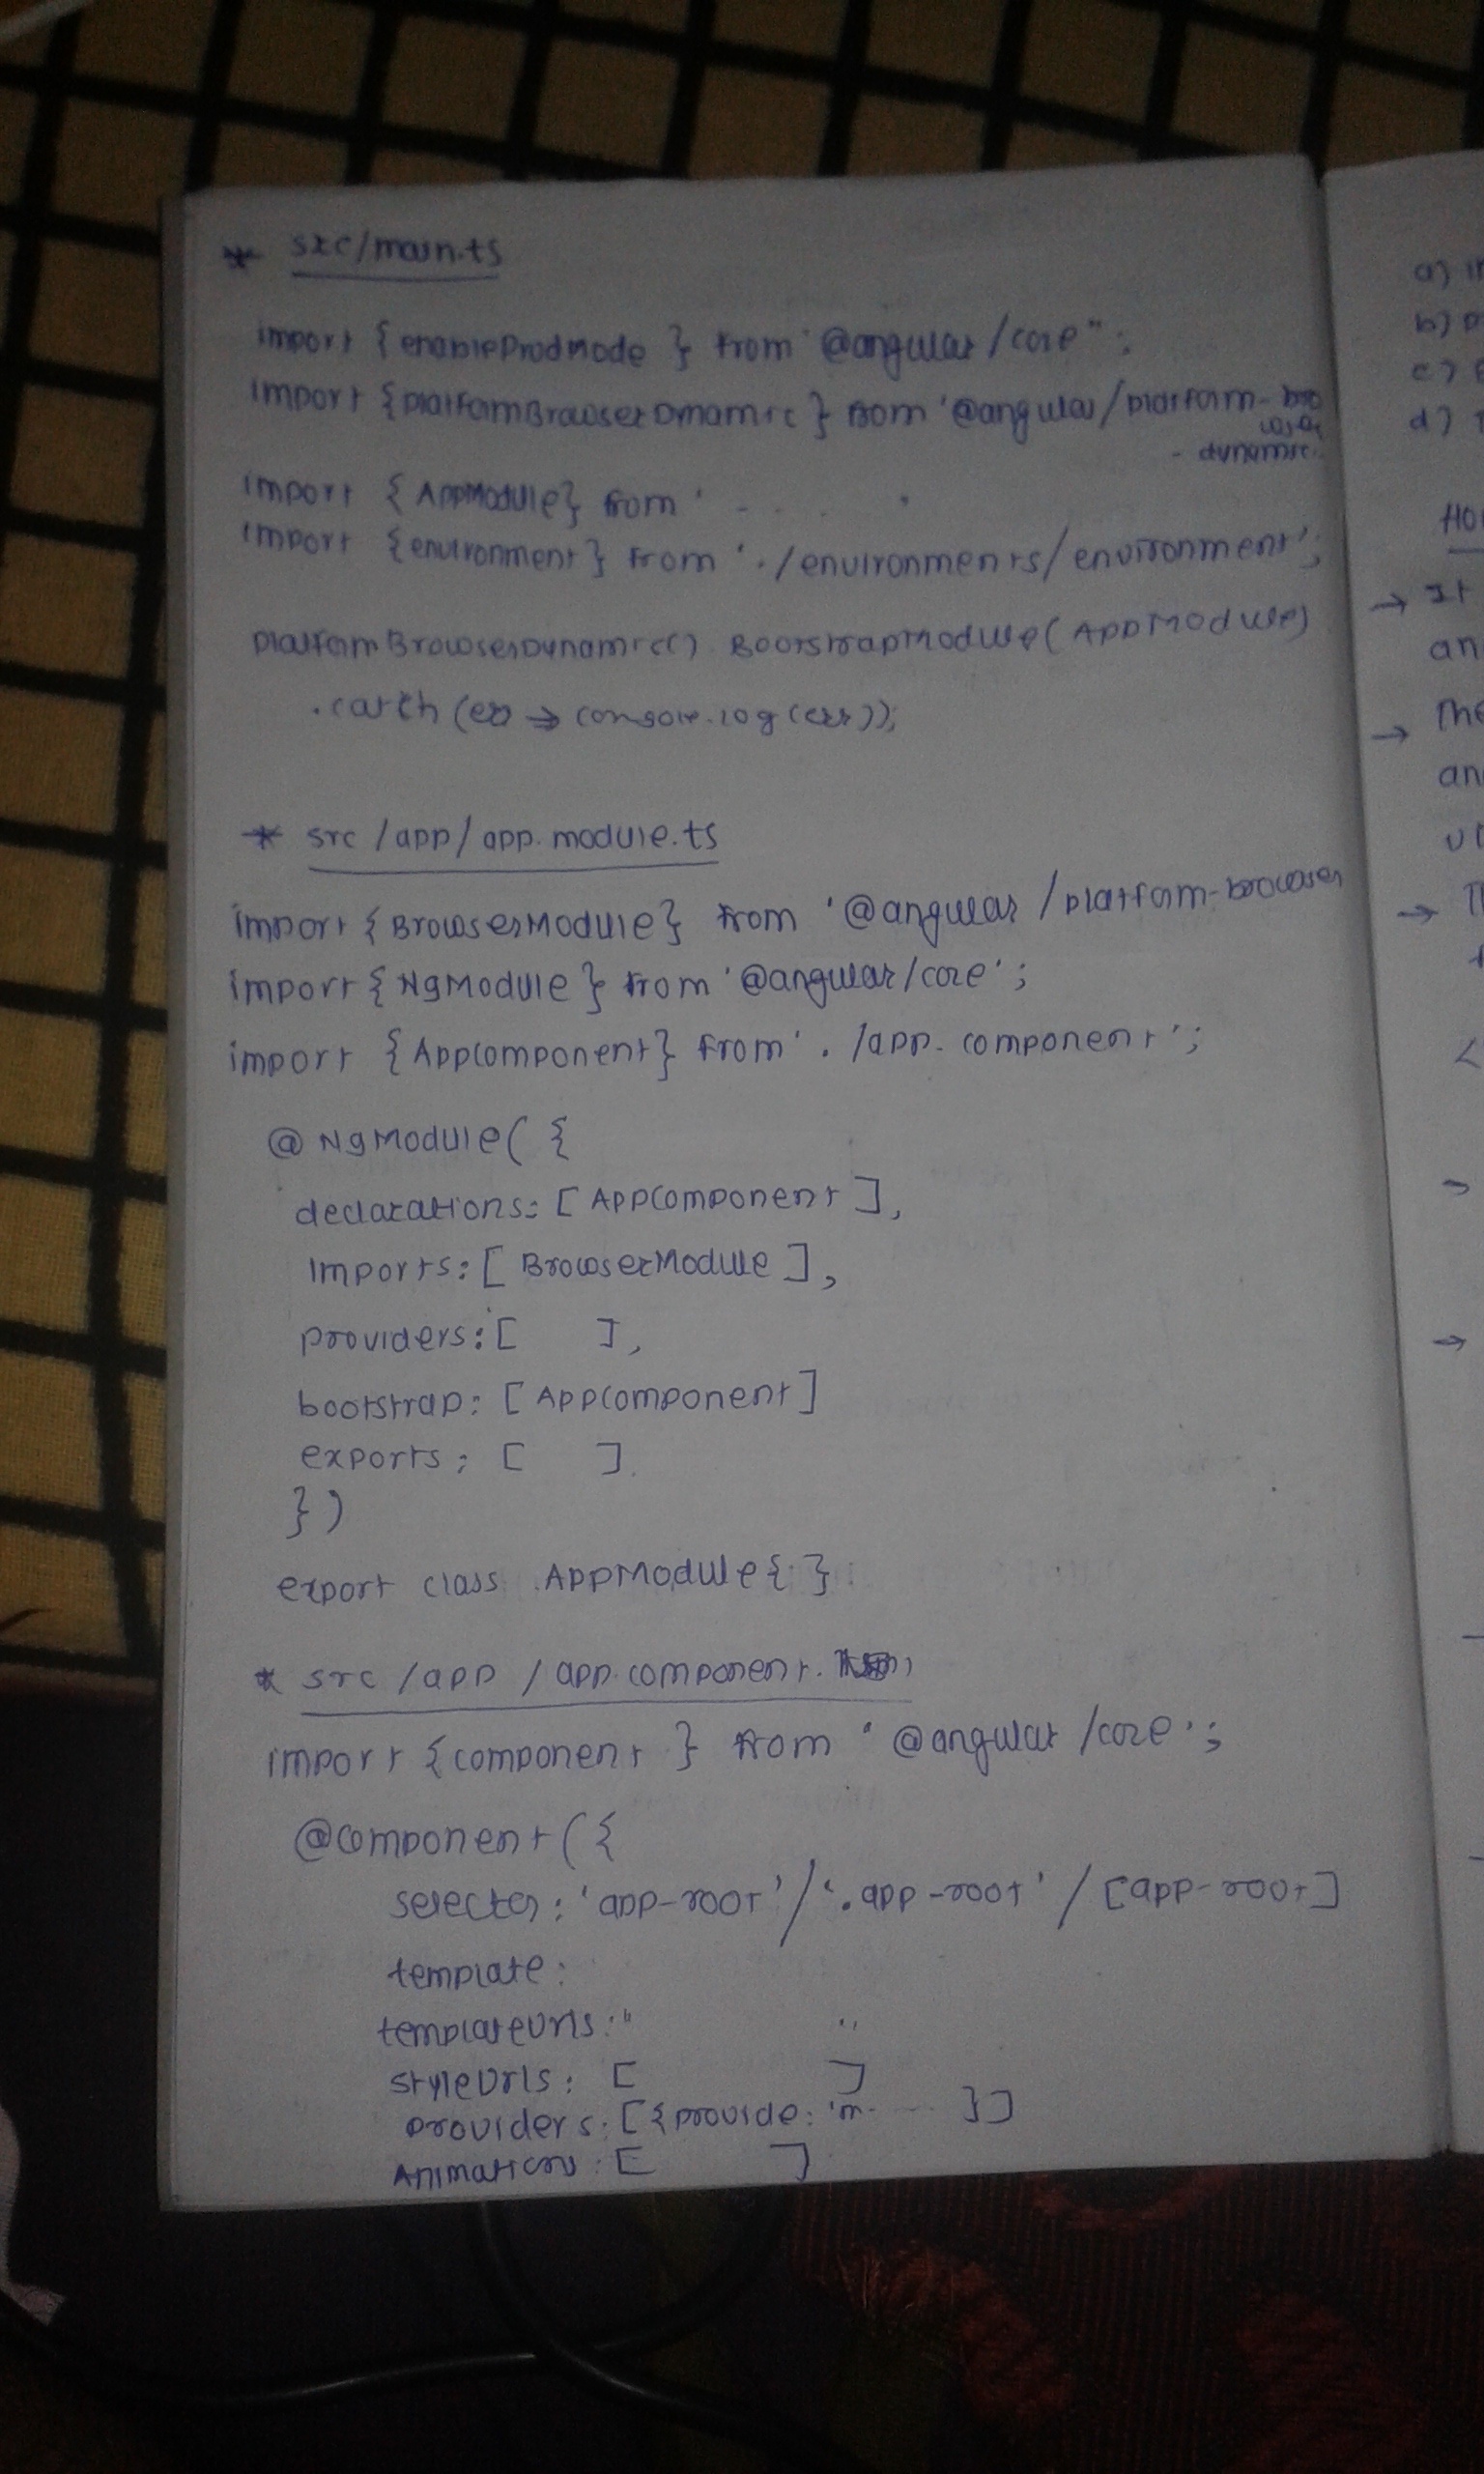 * src/main.ts
import {enableProdMode } from '@angular/core";
import {platformBrowserDynamic } from '@angular/platform-bro
wser
- dynamic
import {AppModule} from ' - . . . .
import {environment} from './environments/environment';
platformBrowserDynamic() . BootstrapModule(AppModule)
.catch (err => console.log(err));
* src/app/app.module.ts
import {BrowserModule} from '@angular/platform-browser
import {NgModule } from '@angular/core';
import {AppComponent} from './app.component';
@NgModule({
declarations: [AppComponent],
imports: [BrowserModule],
providers: [ ],
bootstrap: [AppComponent]
exports: [ ]
})
export class AppModule{ }
* src/app/app.component.
import {component } from '@angular/core';
@component({
selector: 'app-root'/'.app-root' / [app-root]
template:
templateUrls: " "
styleUrls: [ ]
providers: [{provide: 'm- ... }]
Animations: [ ]
a)
b)
c)
d)
→ It
an
→ The
an
→
<
→